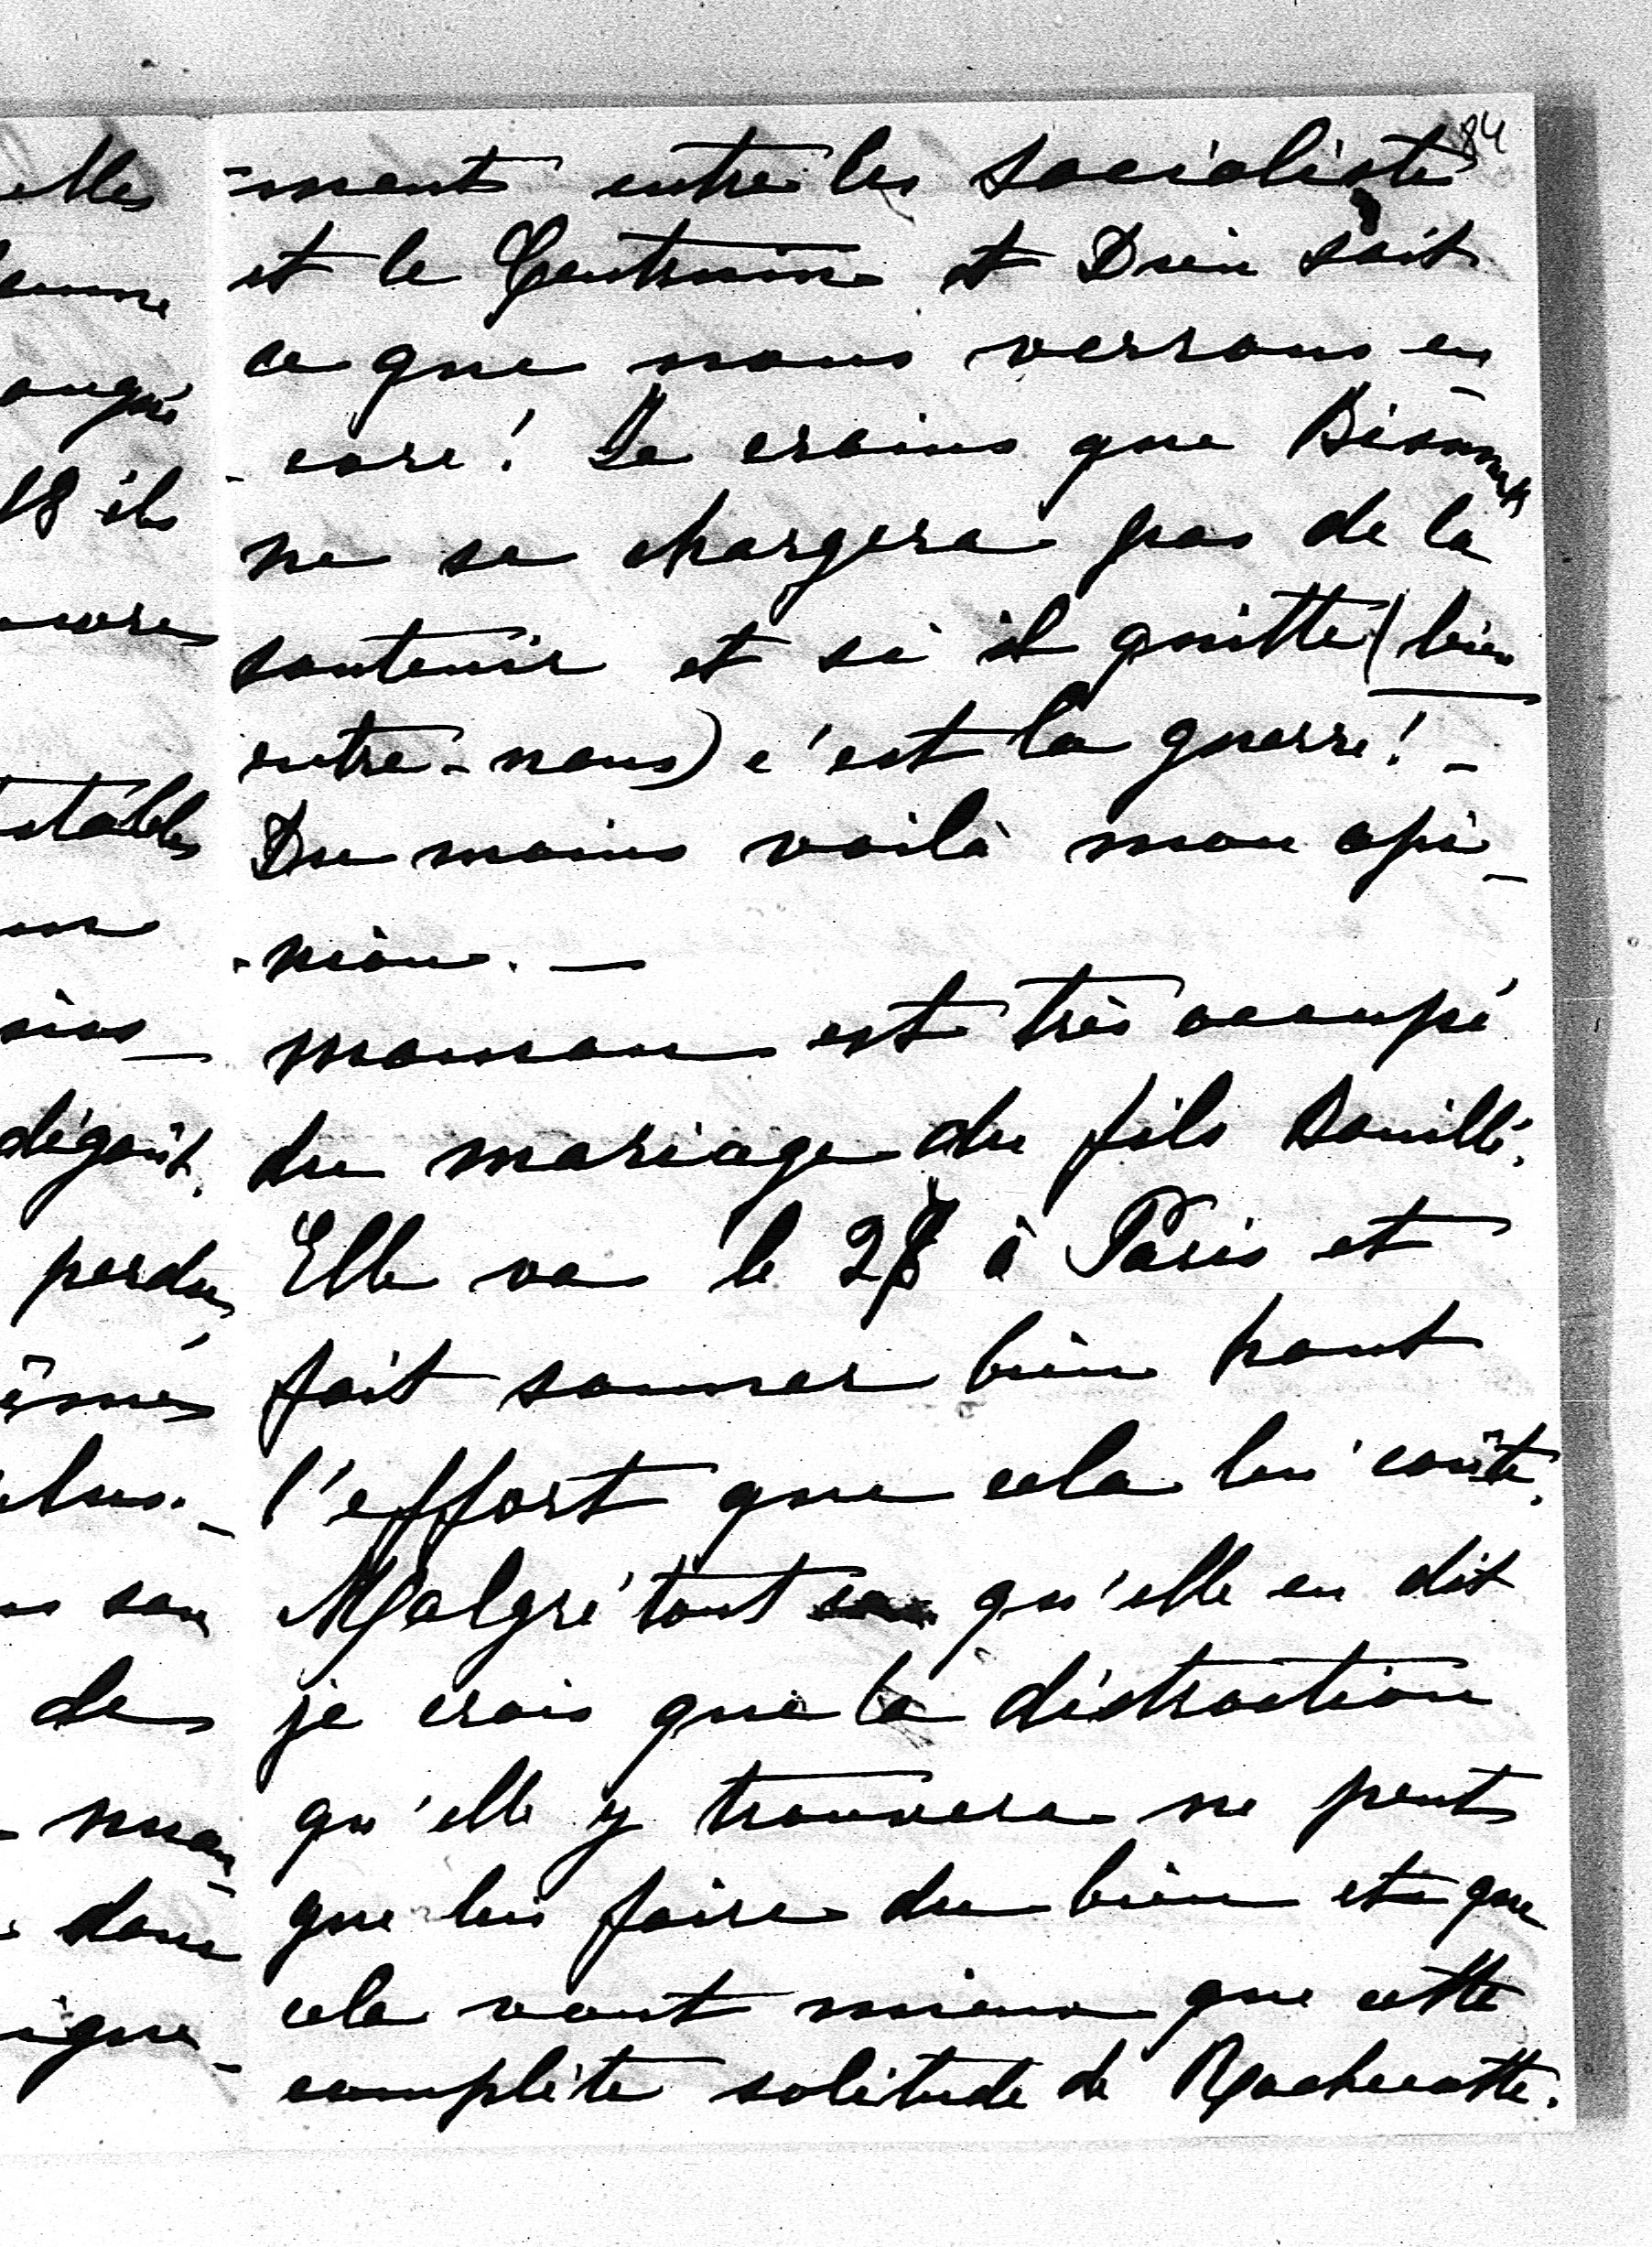 84
-ment entre les socialiste
et le Centrum et Dieu sait
ce que nous verrons en
-core! Je crains que Bismark
ne se chargera pas de la
soutenir et si il quitte (bien
entre-nous) c'est la guerre! -
Du moins voilà mon opi-
-nion. -
maman est très occupé
du mariage du fils Bouillé.
Elle va le 28 à Paris et
fait sonner bien haut
l'effort que cela lui coûte.
Malgré tout qu'elle en dit
je crois que la distraction
qu'elle y trouvera ne peut
que lui faire du bien et que
cela vaut mieux que cette
complète solitude de Rochecotte.